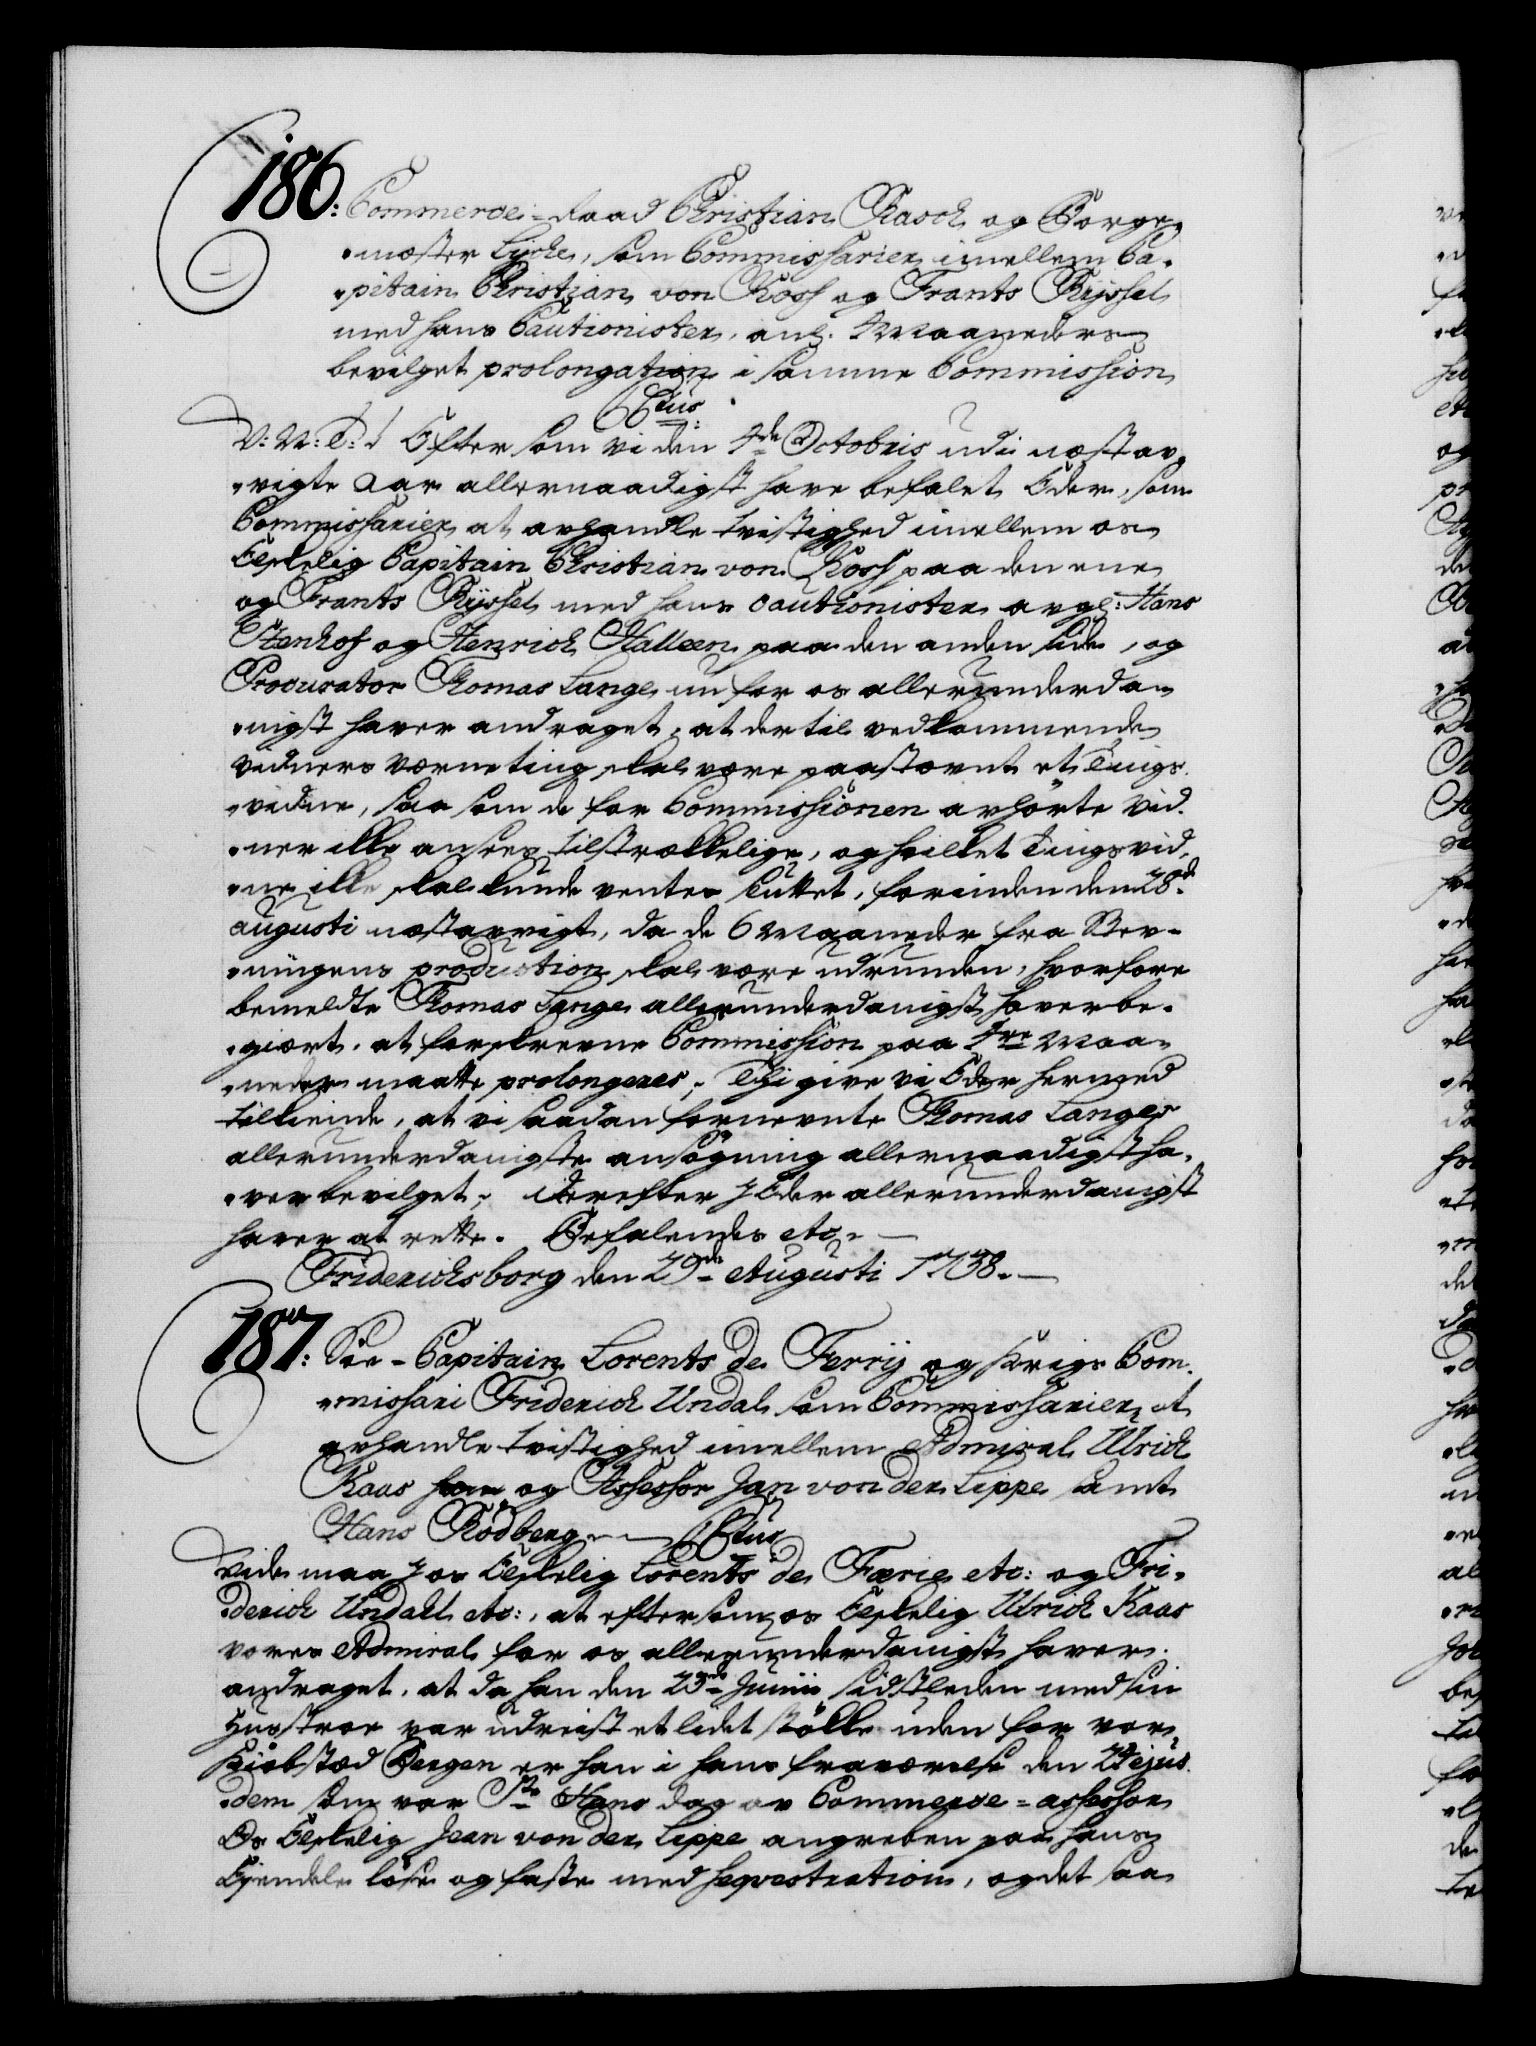 186: Commerce-Raad Christian Rasch og Borge-
mester Lyche, som Commissarier imellem Ca-
pitain Christian von Koss og Frants Ryssel
med hans Cautionister, anl. Maaneders
bevilget prolongation i samme Commission
V: N: T: Efter som vi den 4de Octobris udi næst av-
vigte Aar allernaadigst have befalet Eder, som
Commissarier at avhandle tvistighed imellem os
Elskelig Capitain Christian von Koss paa den ene
og Frants Ryssel med hans cautionister avgl: Hans
Stenhof og Henrich Halleen paa den anden side, og
Procurator Thomas Lange nu for os allerunderda-
nigst haver andraget, at der til vedkommende
vidners Værneting skal være paastævnt et Tings-
vidne, saa som de for Commissionen avhørte vid-
ner ikke ansees tilstrækkelige, og hvilket Tingsvid-
ne ikke skal kunde ventes sluttet, forinden den 28de
augusti næstavvigt, da de 6 Maaneder fra Stev-
ningens production skal være udrunden, hvorfore
bemeldte Thomas Lange allerunderdanigst haver be-
giært, at forskrevne Commission paa Maa-
neder maatte prolongeres; Thi give vi Eder hermed
tilkiende, at vi saadan fornevnte Thomas Langes
allerunderdanigste ansøgning allernaadigst ha-
ver bevilget; Derefter I Eder allerunderdanigst
haver at rette. Befalendes etc.
Friderichsborg den 29de Augusti 1738.
187: Søe-Capitain Lorents de Ferrij og Krigs Com-
missari Friderich Undal som Commissarier at
avhandle tvistighed imellem Admiral Ulrich
Kaas og Assessor Jan von der Lippe samt
Hans Rødberg
Vide maa I os Elskelig Lorents de Færie etc: og Fri-
derich Undahl etc:, at eftersom os Elskelig Ulrich Kaas
vores Admiral for os allerunderdanigst haver
andraget, at da han den 23de Junii sidstleden med sin
Hustroe var udreist et lidet støkke uden for vor
Kiøbstæd Bergen er han i hans fraværelse den 24 ejus-
dem som var Ste Hans dag av Commerce-assessor
Os Elskelig Jean von der Lippe angreben paa hans
Ejendele løse og faste med seqvestration, og det saa